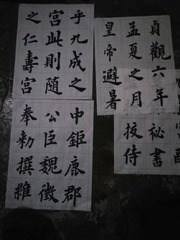 貞觀六年
孟夏之月
皇帝避暑
乎九成之
宮此則隨
之仁壽宮
祕書
挍侍
中鉅鹿郡
公臣魏徵
奉勑撰維